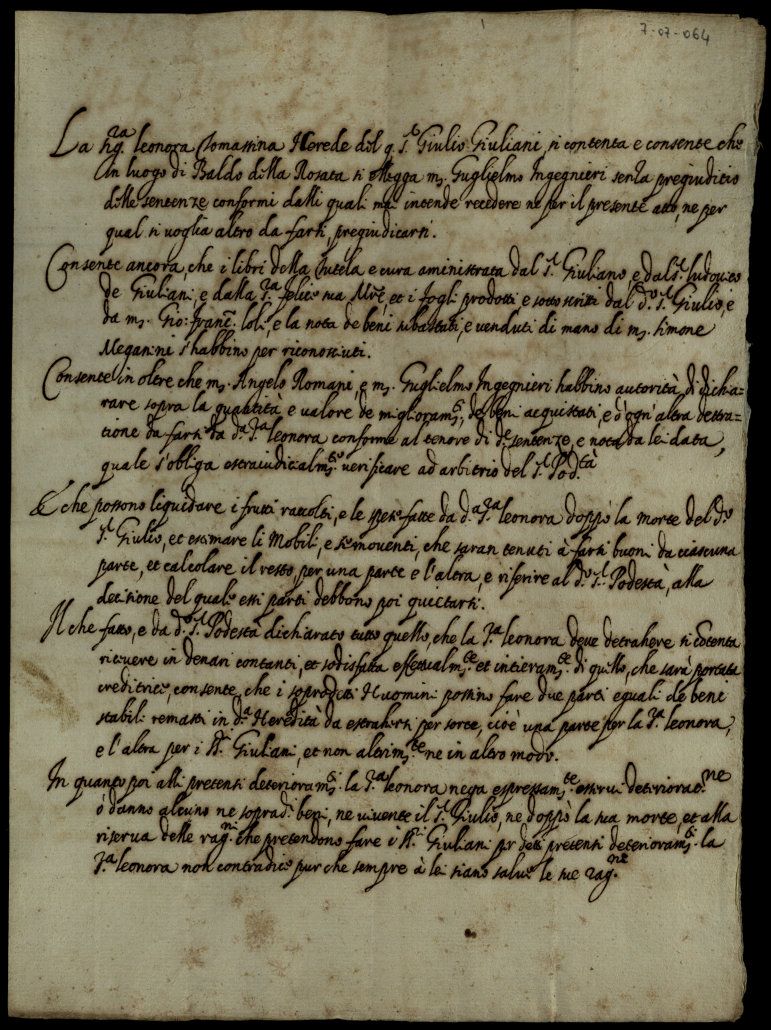 7-07-064
La Sig.ra leonora Tomassina Herede del q. S.r Giulio Giuliani, si contenta e consente che
in luogo di Baldo della Rosata si elegga m. Guglielmo Ingegnieri senza pregiuditio
delle sentenze conformi dalli quali mai intende recedere ne per il presente atto, ne per
qual si voglia altro da farsi, pregiudicarsi.
Consente ancora, che i libri della Tutela e cura aministrata dal S.r Giuliano, e dal S.r ludovico
de Giuliani, e dalla S.ra felice sua M.re, et i fogli prodotti e sottoscritti dal d.o S.r Giulio, e
da m. Gio: franc.o loli, e la nota de beni subastati, e venduti di mano di m. simone
Meganini s'habbino per riconosciuti.
Consente in oltre che m. Angelo Romani, e m. Guglielmo Ingegnieri habbino autorità di dichia=
rare sopra la quantità e valore de miglioram.ti, de beni acquistati, e d'ogn'altra detra=
tione da farsi da d.a S.ra leonora conforme al tenore di d.e sentenze, e nota da lei data,
quale s'obliga estraiudicialm.te verificare ad arbitrio del S.r Pod.tà
E che possono liquidare i frutti raccolti, e le spese fatte da d.a S.ra leonora doppò la morte del d.o
S.r Giulio, et estimare li Mobili, e semoventi, che saran tenuti à farsi buoni da ciascuna
parte, et calcolare il resto, per una parte e l'altra, e riferire al d.o S.r Podestà, alla
decisione del quale essi parti debbono poi quietarsi.
Il che fatto, e da d.o S.r Podestà dichiarato tutto quello, che la S.ra leonora deve detrahere si cōtenta
ricevere in denari contanti, et sodisfatta effettualm.te et intieram.te di quello, che sarà portata
creditrice, consente, che i sopradetti Huomini possino fare due parti eguali de beni
stabili remasti in d.a Heredità da estraherti per sorte, cioè una parte per la S.ra leonora,
e l'altra per i SS.ri Giuliani, et non altrim.te ne in altro modo.
In quanto poi alli pretensi deterioram.ti la S.ra leonora nega espressam.te esservi deteriorat.ne
ò danno alcuno ne soprad.i beni, ne vivente il S.r Giulio, ne doppò la sua morte, et alla
riserva delle rag.ni che pretendono fare i SS.ri Giuliani pr detti pretensi deterioram.ti la
S.ra leonora non contradice pur che sempre à lei siano salve le sue rag.ne